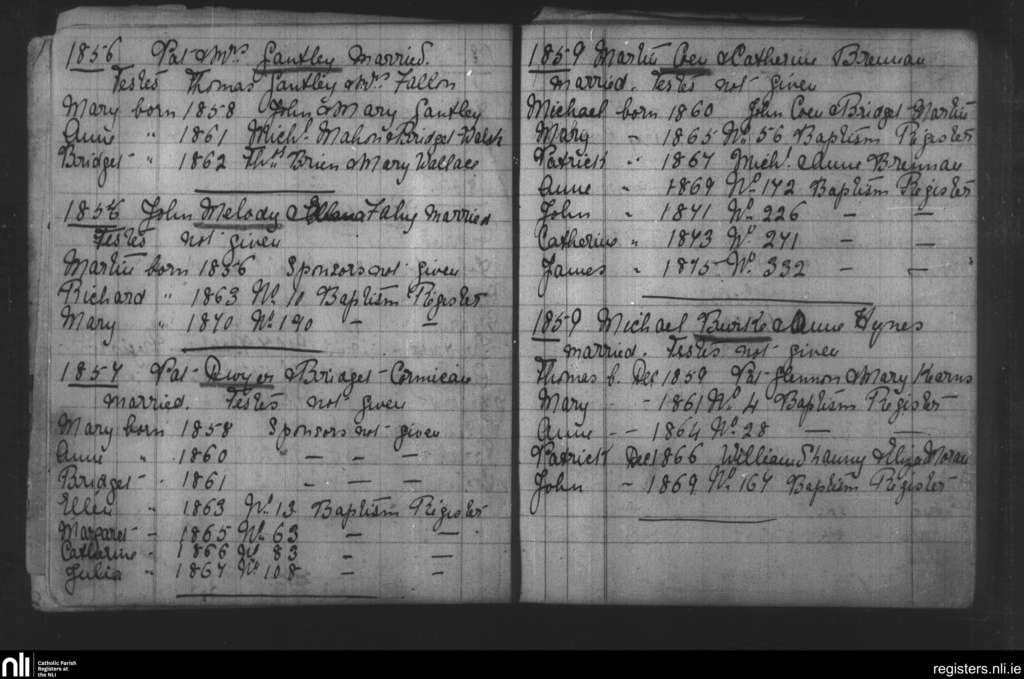 1856 Pat & Mrs Gantley Married.
Testes Thomas Gantley & Mrs Fallon
Mary born 1858 John & Mary Gantley
Anne " 1861 Michl. Mahon & Bridget Walsh
Bridget " 1862 Ths. Brien & Mary Wallace
1856 John Melody & Fahy married
Testes not given
Martin born 1856 Sponsors not given
Richard " 1863 No. 10 Baptism Register
Mary " 1870 No. 190 - -
1857 Pat Dwyer & Bridget Cormican
married. Testes not given
Mary born 1858 Sponsors not given
Anne " 1860 - - -
Bridget " 1861 - - -
Ellen " 1863 No. 13 Baptism Register
Margaret - 1865 No. 63 - -
Catherine - 1866 No. 83 - -
Julia " 1867 No. 108 - -
1859 Martin Coen & Catherine Brennan
married. Testes not given
Michael born 1860 John Coen & Bridget Martin
Mary - 1865 No. 56 Baptism Register
Patrick " 1867 Michl. & Anne Brennan
Anne " 1869 No. 172 Baptism Register
John " 1871 No. 226 - -
Catherine " 1873 No. 271 - -
James " 1875 No. 332 - -
1859 Michael Burke & Anne Hynes
married. Testes not given
Thomas b. Dec 1859 Pat Glennon & Mary Kearns
Mary - - 1861 No. 4 Baptism Register
Anne - - 1864 No. 28 - -
Patrick Dec 1866 William Shauny & Eliza Moran
John - 1869 No. 167 Baptism Register
nli Catholic Parish
Registers at
the NLI
registers.nli.ie